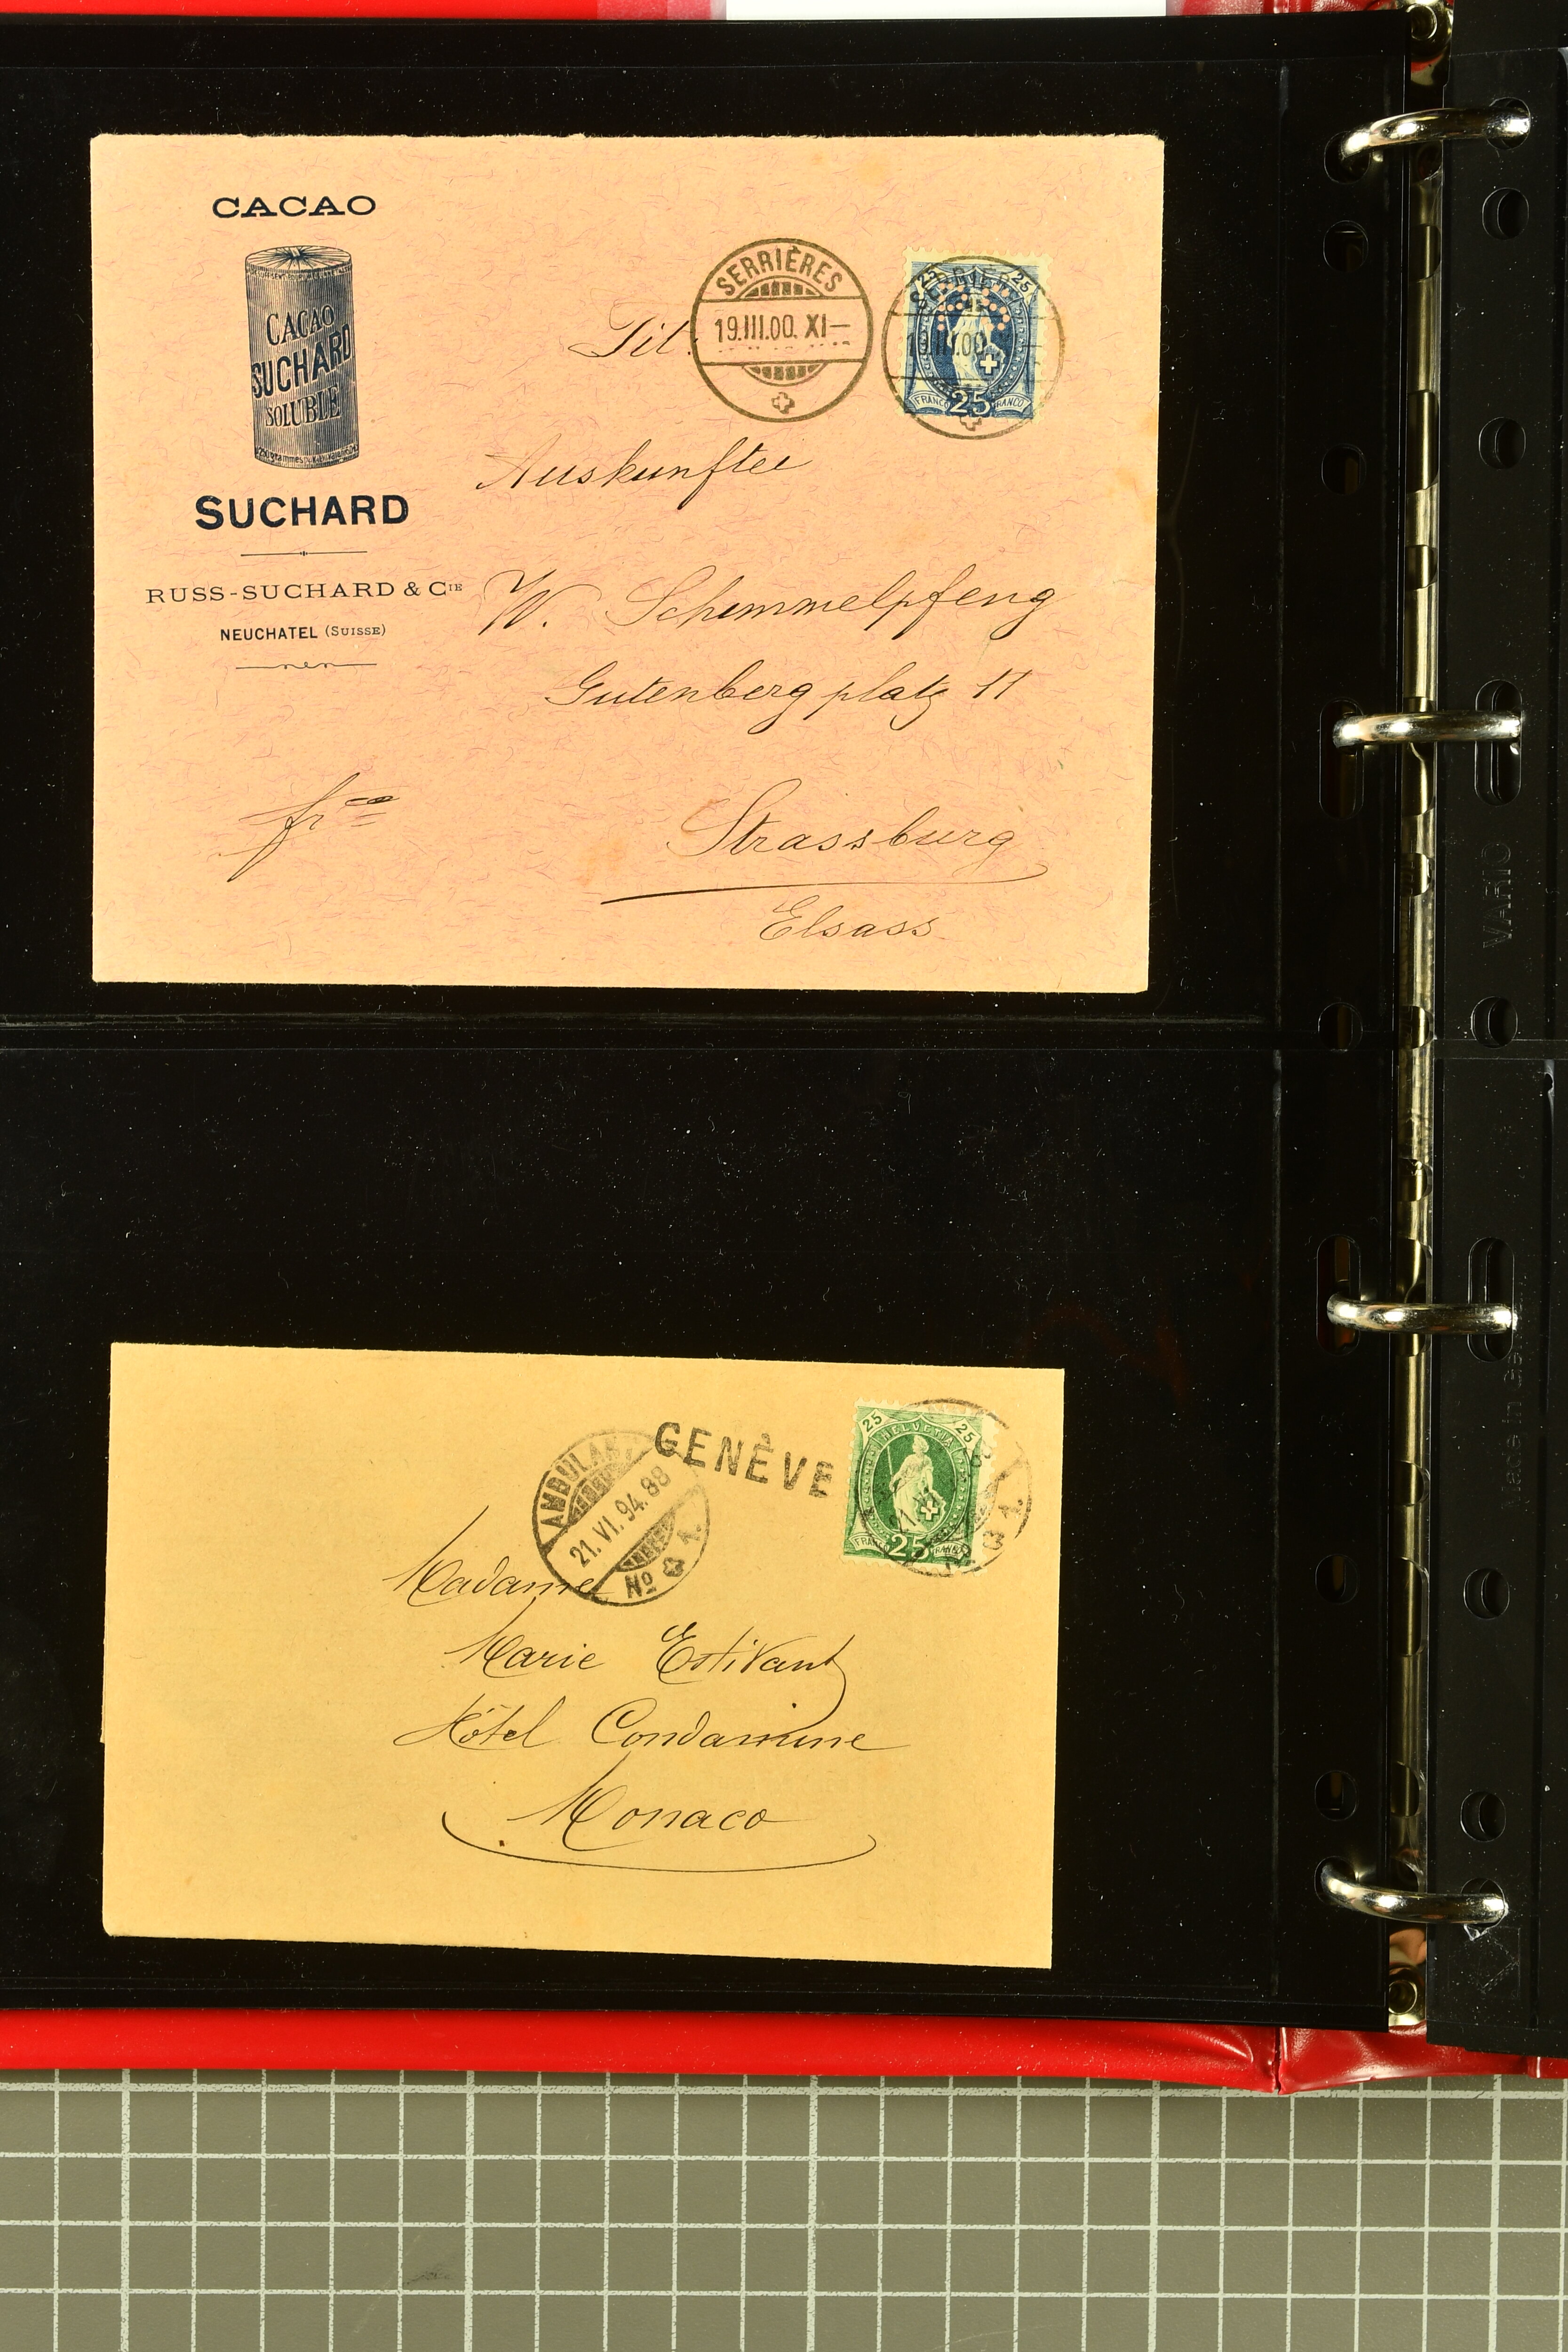 CACAO
CACAO
SUCHARD
SOLUBLE
SUCHARD
RUSS-SUCHARD & CIE
NEUCHATEL (SUISSE)
SERRIÈRES
19.III.00. XI-
25 25
FRANCO 25 FRANCO
Tit.
Auskunftei
W. Schimmelpfeng
Gutenbergplatz 11
frco
Strassburg
Elsass
GENÈVE
AMBULANT
21.VI.94.88
No A.
25 HELVETIA 25
FRANCO 25 FRANCO
Madame
Marie Estivant
Hôtel Condamine
Monaco
VARIO